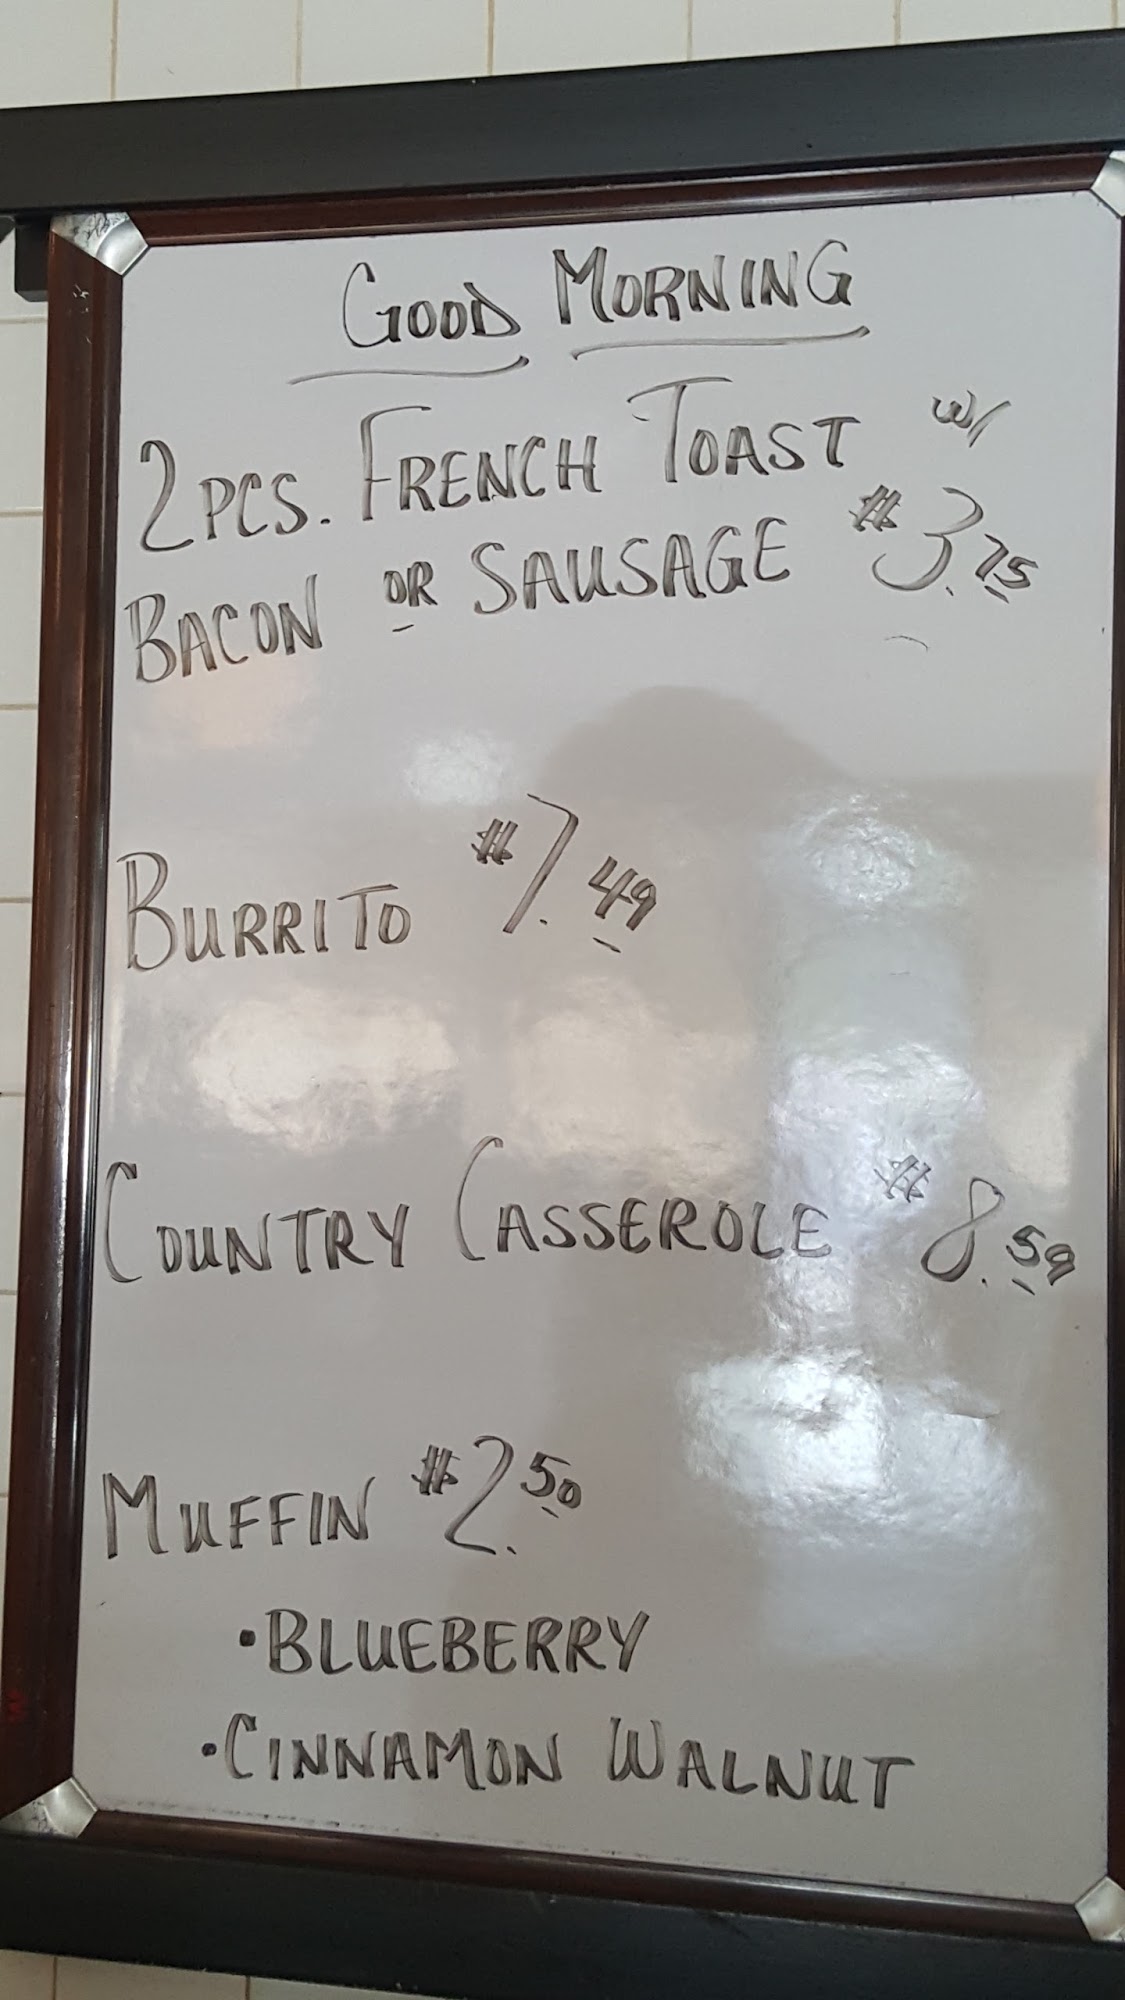 GOOD MORNING
2 PCS. FRENCH TOAST w/
BACON OR SAUSAGE $3.75
BURRITO $7.49
COUNTRY CASSEROLE $8.59
MUFFIN $2.50
• BLUEBERRY
• CINNAMON WALNUT